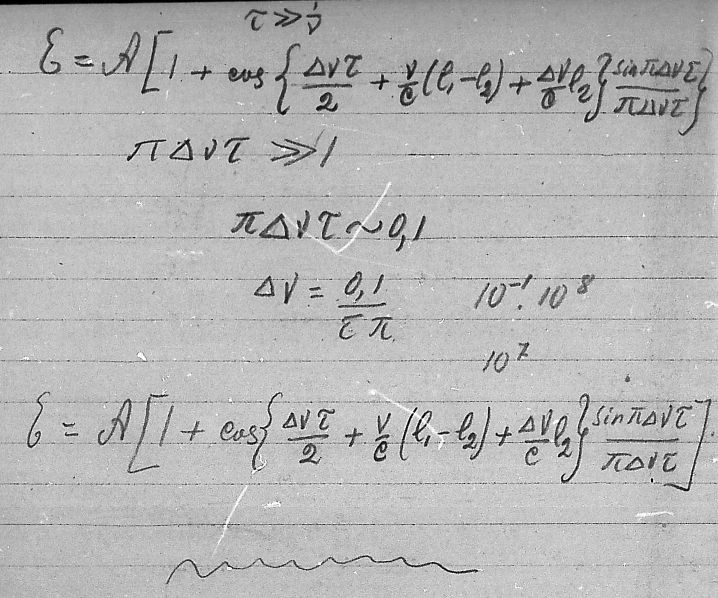 τ ≫ 1/ν
ℰ = A[1 + cos{Δντ/2 + ν/c(ℓ₁-ℓ₂) + Δν/c ℓ₂} sinπΔντ/πΔντ]
πΔντ ≫ 1
πΔντ ~ 0,1
Δν = 0,1/τπ 10⁻¹·10⁸
10⁷
ℰ = A[1 + cos{Δντ/2 + ν/c(ℓ₁-ℓ₂) + Δν/c ℓ₂} sinπΔντ/πΔντ].